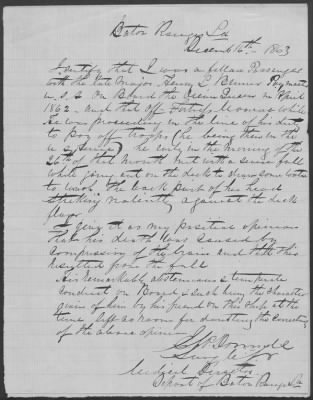 Baton Rouge La
December 16th 1863
I certify that I was a fellow Passenger
with the late Major Henry L. Paymaster
U.S.A. on Board the Ocean Queen in April
1862. and that off Fortress Monroe while He
was proceeding in the line of his duty
to Pay off troops (he being then in the
U S Service) he early in the morning of the
26th of that Month met with a severe fall
while going out on the deck to draw some water
to wash. the back part of his head
striking violently against the deck
floor
I give it as my positive opinion
that his death was caused by
compression of the brain and that this
resulted from the fall
His remarkably abstemious & temperate
conduct on Board & such being the character
given of him by his friend on the ship at the
time left no room for doubting the correctness
of the above opinion
Surg
Medical Director
Depart of Baton Rouge La